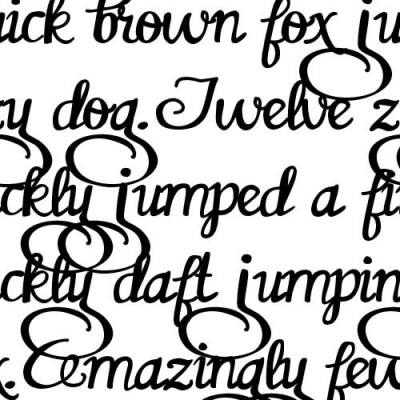 ick brown fox ju
y dog. Twelve z
ckly jumped a fi
ckly daft jumpin
x. Amazingly few